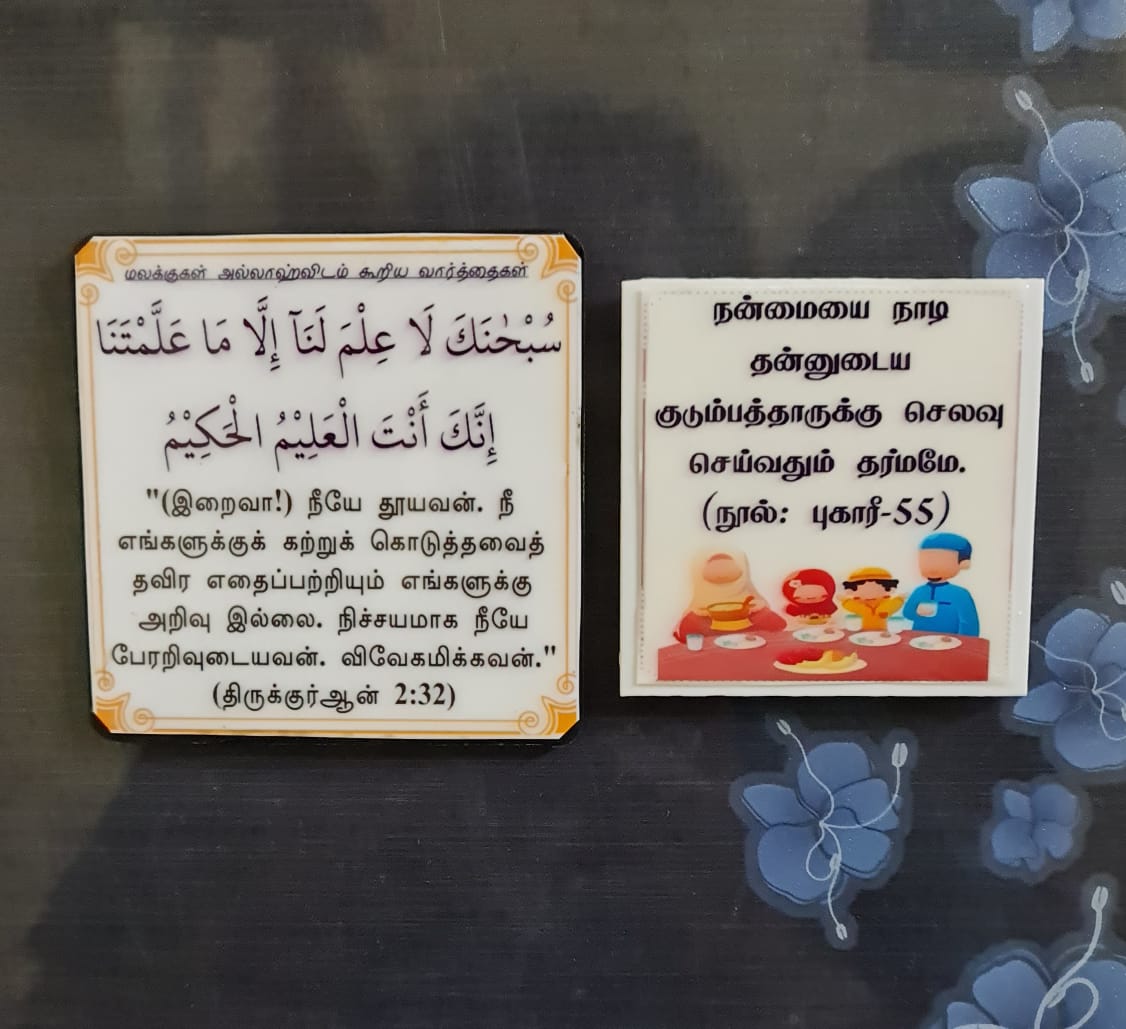 மலக்குகள் அல்லாஹ்விடம் கூறிய வார்த்தைகள்
سُبْحٰنَكَ لَا عِلْمَ لَنَآ إِلَّا مَا عَلَّمْتَنَا
إِنَّكَ أَنْتَ الْعَلِيْمُ الْحَكِيْمُ
"(இறைவா!) நீயே தூயவன். நீ
எங்களுக்குக் கற்றுக் கொடுத்தவைத்
தவிர எதைப்பற்றியும் எங்களுக்கு
அறிவு இல்லை. நிச்சயமாக நீயே
பேரறிவுடையவன். விவேகமிக்கவன்."
(திருக்குர்ஆன் 2:32)
நன்மையை நாடி
தன்னுடைய
குடும்பத்தாருக்கு செலவு
செய்வதும் தர்மமே.
(நூல்: புகாரீ-55)